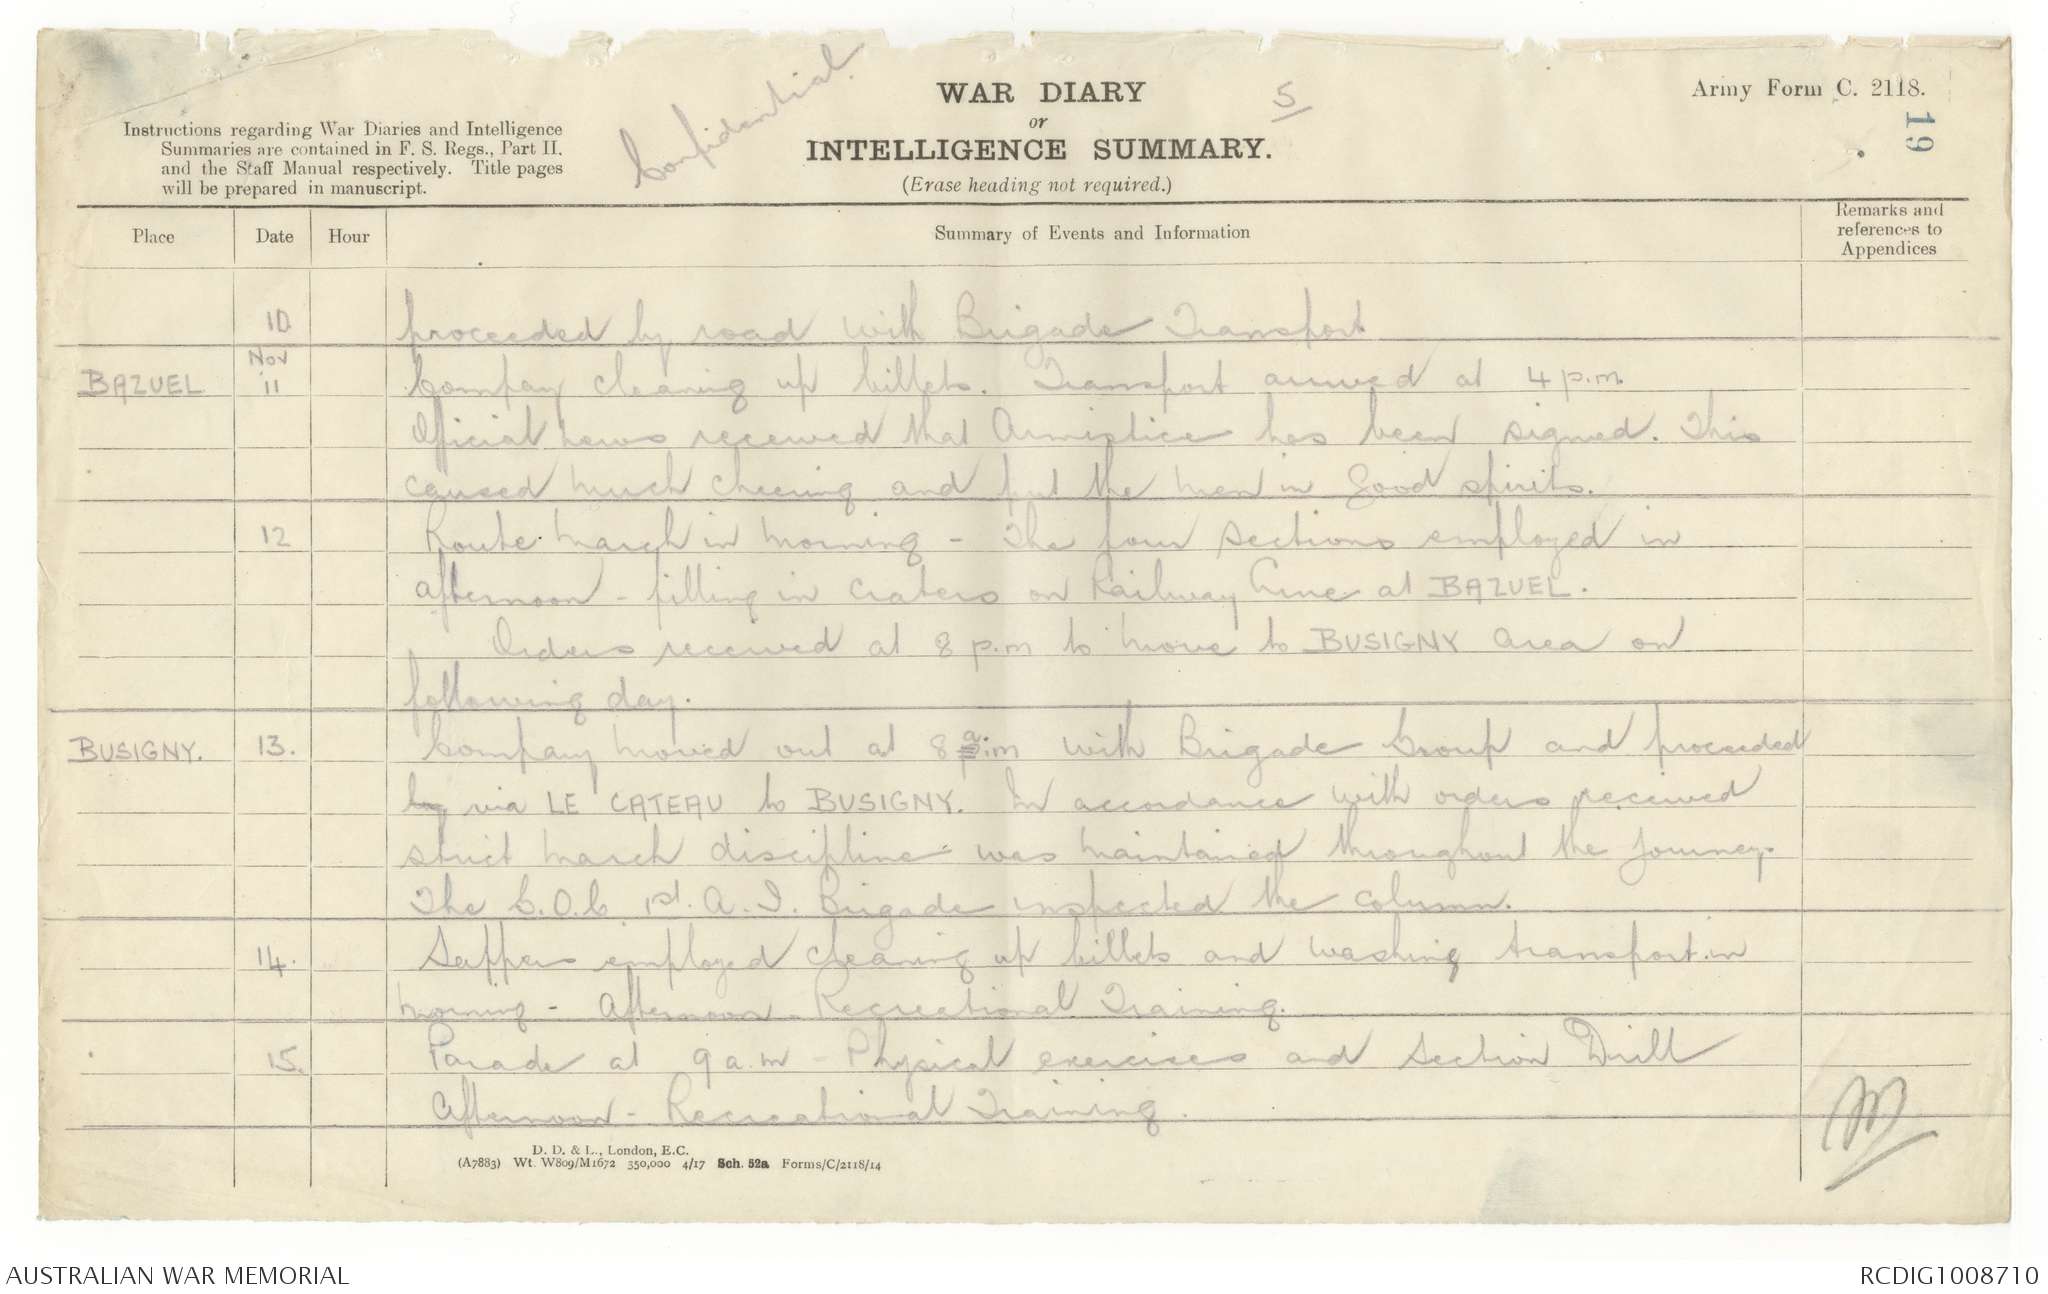 Confidential.
WAR DIARY
or
INTELLIGENCE SUMMARY.
(Erase heading not required.)
5
Army Form C. 2118.
19
Instructions regarding War Diaries and Intelligence
Summaries are contained in F. S. Regs., Part II.
and the Staff Manual respectively. Title pages
will be prepared in manuscript.
Place Date Hour Summary of Events and Information Remarks and
references to
Appendices
10 proceeded by road with Brigade Transport
Nov
BAZUEL 11 Company cleaning up billets. Transport arrived at 4 p.m.
Official news received that Armistice has been signed. This
caused much cheering and put the men in good spirits.
12 Route march in morning - The four sections employed in
afternoon - filling in craters on Railway Line at BAZUEL.
Orders received at 8 p.m to move to BUSIGNY area on
following day.
BUSIGNY. 13. Company moved out at 8 a.m with Brigade Group and proceeded
by via LE CATEAU to BUSIGNY. In accordance with orders received
strict march discipline was maintained throughout the journey.
The G.O.C 1st. A. I. Brigade inspected the column.
14. Sappers employed cleaning up billets and washing transport in
morning - Afternoon - Recreational Training.
15. Parade at 9 a.m - Physical exercises and Section Drill
Afternoon - Recreational Training.
D. D. & L., London, E.C.
(A7883) Wt. W809/M1672 350,000 4/17 Sch. 52a Forms/C/2118/14
AUSTRALIAN WAR MEMORIAL
RCDIG1008710